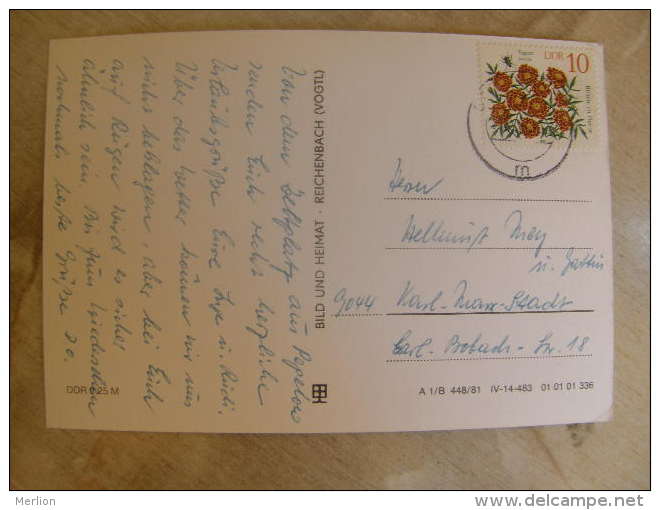 Von dem Zeltplatz aus Pepelow
senden Euch recht herzliche
Urlaubsgrüße Eure Inge u. Rudi.
Über das Wetter können wir uns
nicht beklagen, aber bei Euch
auf Rügen wird es sicher
ähnlich sein. Bis zum Wiedersehen
nochmals herzl. Grüße D.O.
DDR 0,25 M
BILD UND HEIMAT · REICHENBACH (VOGTL)
DDR 10
Herrn
Hellmut Mey
u. Gattin
9044 Karl-Marx-Stadt
Carl-Bobach-Str. 18
A 1/B 448/81 IV-14-483 01 01 01 336
Merlion
www.delcampe.net